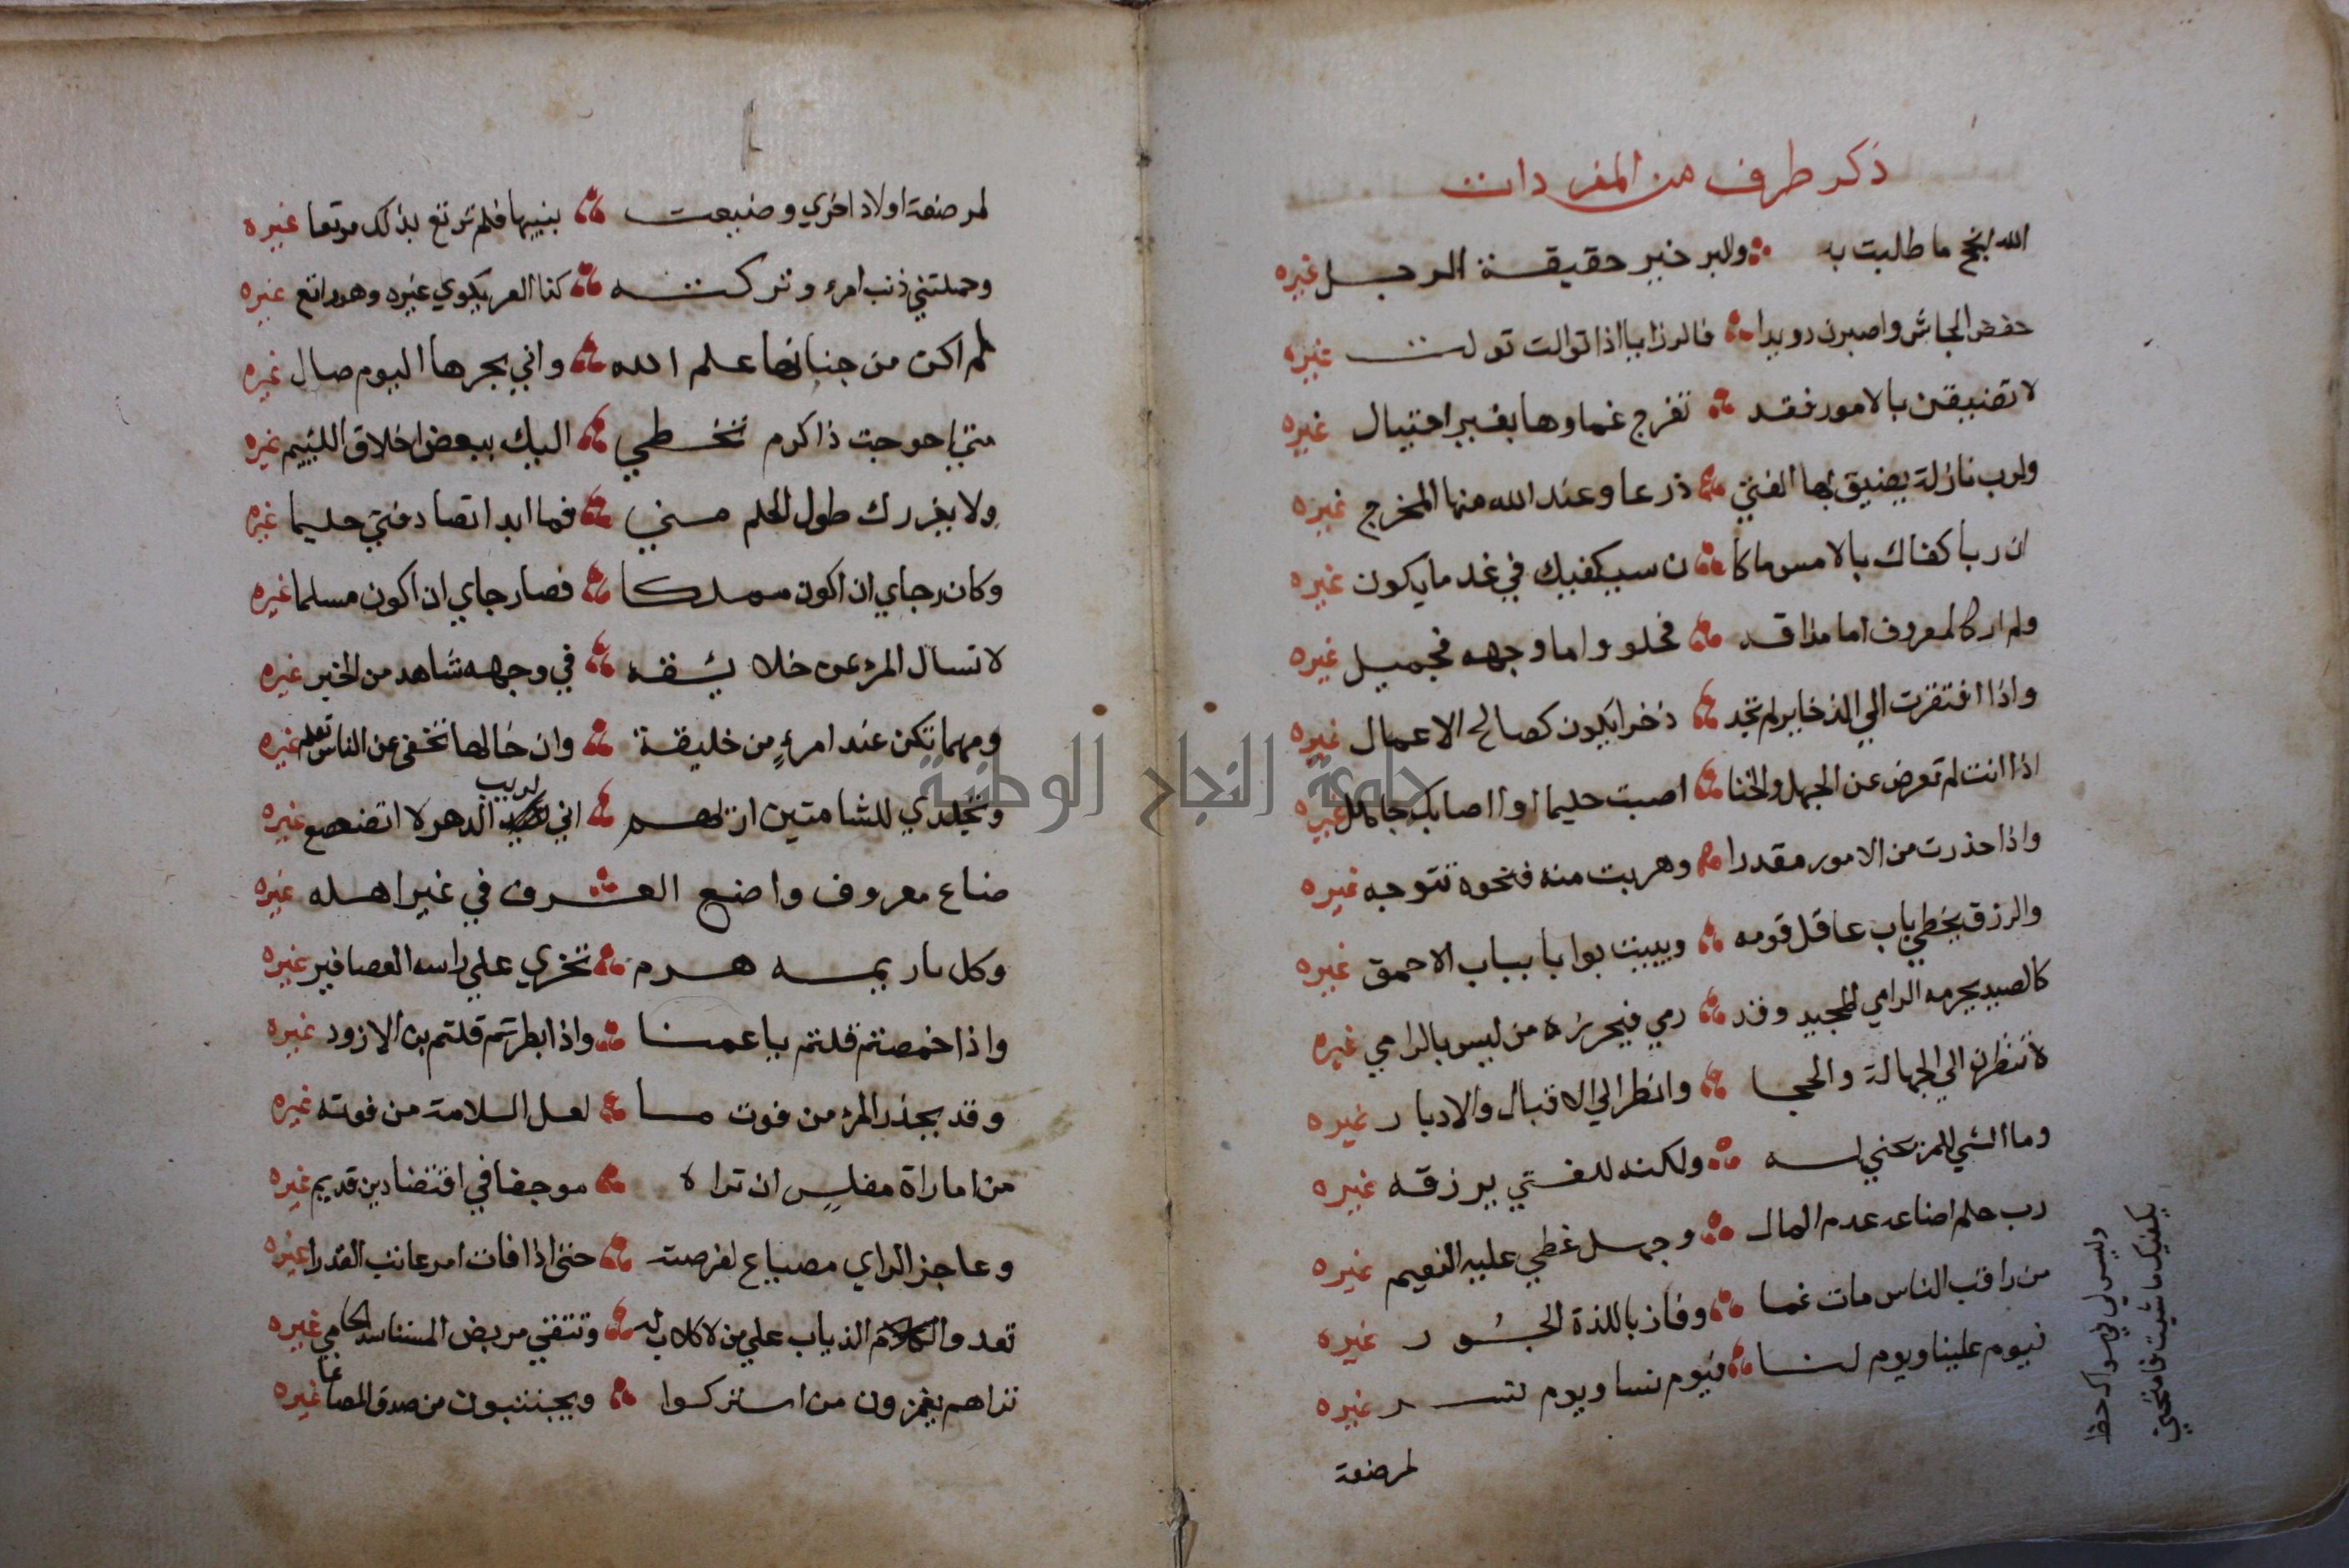 ذكر طرف من المفردات
الله انجح ما طلبت به والبر خير حقيقة الرجل غيره
خفض الجاش واصبرن رويدا فالرزايا اذا توالت تولت غيره
لا تضيقن بالامور فقد تفرج غماوها بغير احتيال غيره
ولرب نازلة يضيق بها الفتي ذرعا وعند الله منها المخرج غيره
ان ربا كفاك بالامس ما كا ن سيكفيك في غد ما يكون غيره
ولم ار كالمعروف اما مذاقه فحلو واما وجهه فجميل غيره
واذا افتقرت الي الذخاير لم تجد ذخرا يكون كصالح الاعمال غيره
اذا انت لم تعرض عن الجهل والخنا اصبت حليما او اصابك جاهل غيره
واذا حذرت من الامور مقدرا وهربت منه فنحوه تتوجه غيره
والرزق يخطي باب عاقل قومه ويبيت بوابا بباب الاحمق غيره
كالصيد يحرمه الرامي المجيد وقد يرمي فيحرزه من ليس بالرامي غيره
لا تنظرن الي الجهالة والحجا وانظر الي الاقبال والادبار غيره
وما الشي للمرء يحني له ولكنه للفتي يرزقه غيره
رب حلم اضاعه عدم المال وجهل غطي عليه النعيم غيره
من راقب الناس مات غما وفاز باللذة الجسور غيره
فيوم علينا ويوم لنا فيوم نسا ويوم نسر غيره
لمرضعة
وليس لي في سواك حظ
فكيفما شيت فامتحني
لمرضعة اولاد اخري وضيعت بنيها فلم ترتع بذلك مرتعا غيره
وحملتني ذنب امرء وتركته كذا العر يكوي غيره وهو راتع غيره
لم اكن من جناتها علم الله واني بحرها اليوم صال غيره
متي احوجت ذا كرم تخطي اليك ببعض اخلاق اللئيم غيره
ولا يغررك طول الحلم مني فما ابدا تصادفني حليما غيره
وكان رجاي ان اكون مملكا فصار رجاي ان اكون مسلما غيره
لا تسال المرء عن خلايقه في وجهه شاهد من الخبر غيره
ومهما تكن عند امرءٍ من خليقة وان خالها تخفي عن الناس تعلم غيره
وتجلدي للشامتين اريهم اني لريب الدهر لا اتضعضع غيره
ضاع معروف واضع العرف في غير اهله غيره
وكل باز يمسه هرم تخري علي راسه العصافير غيره
واذا خمصتم قلتم ياعمنا واذا بطرتم قلتم بن الازور غيره
وقد يحذر المرء من فوت ما لعل السلامة من فوته غيره
من اماراة مفلسٍ ان تراه موجفا في اقتضا دين قديم غيره
وعاجز الراي مضياع لفرصته حتي اذا فات امر عاتب القدرا غيره
تعدو الذياب علي من لا كلاب له وتتقي مربض المستاسد الحامي غيره
تراهم يغمزون من استركوا ويجتنبون من صدق المصاعا غيره